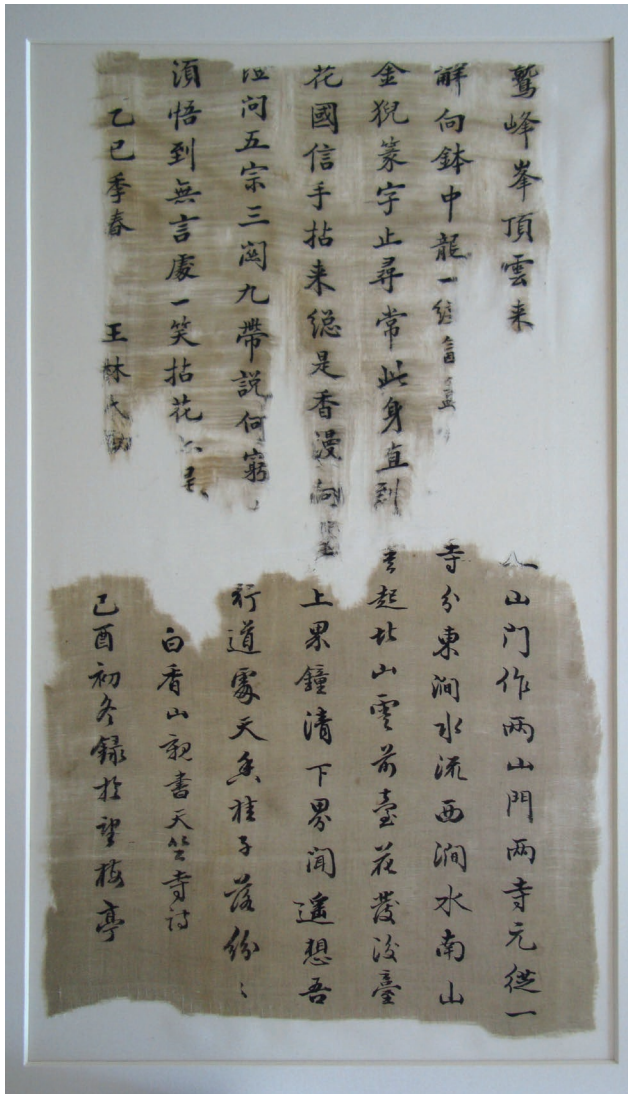 鷲峰峯頂雲来
解向鉢中龍一
金猊篆字止尋常此身直到
花國信手拈来緫是香漫向
问五宗三関九帶説何窮
須悟到無言處一笑拈花
乙巳季春 王林
山门作两山門两寺元從一
寺分東澗水流西澗水南山
起北山雲前臺花發後臺
上界鐘清下界聞遥想吾
行道處天香桂子落纷〻
白香山親書天竺寺詩
己酉初冬録於望梅亭